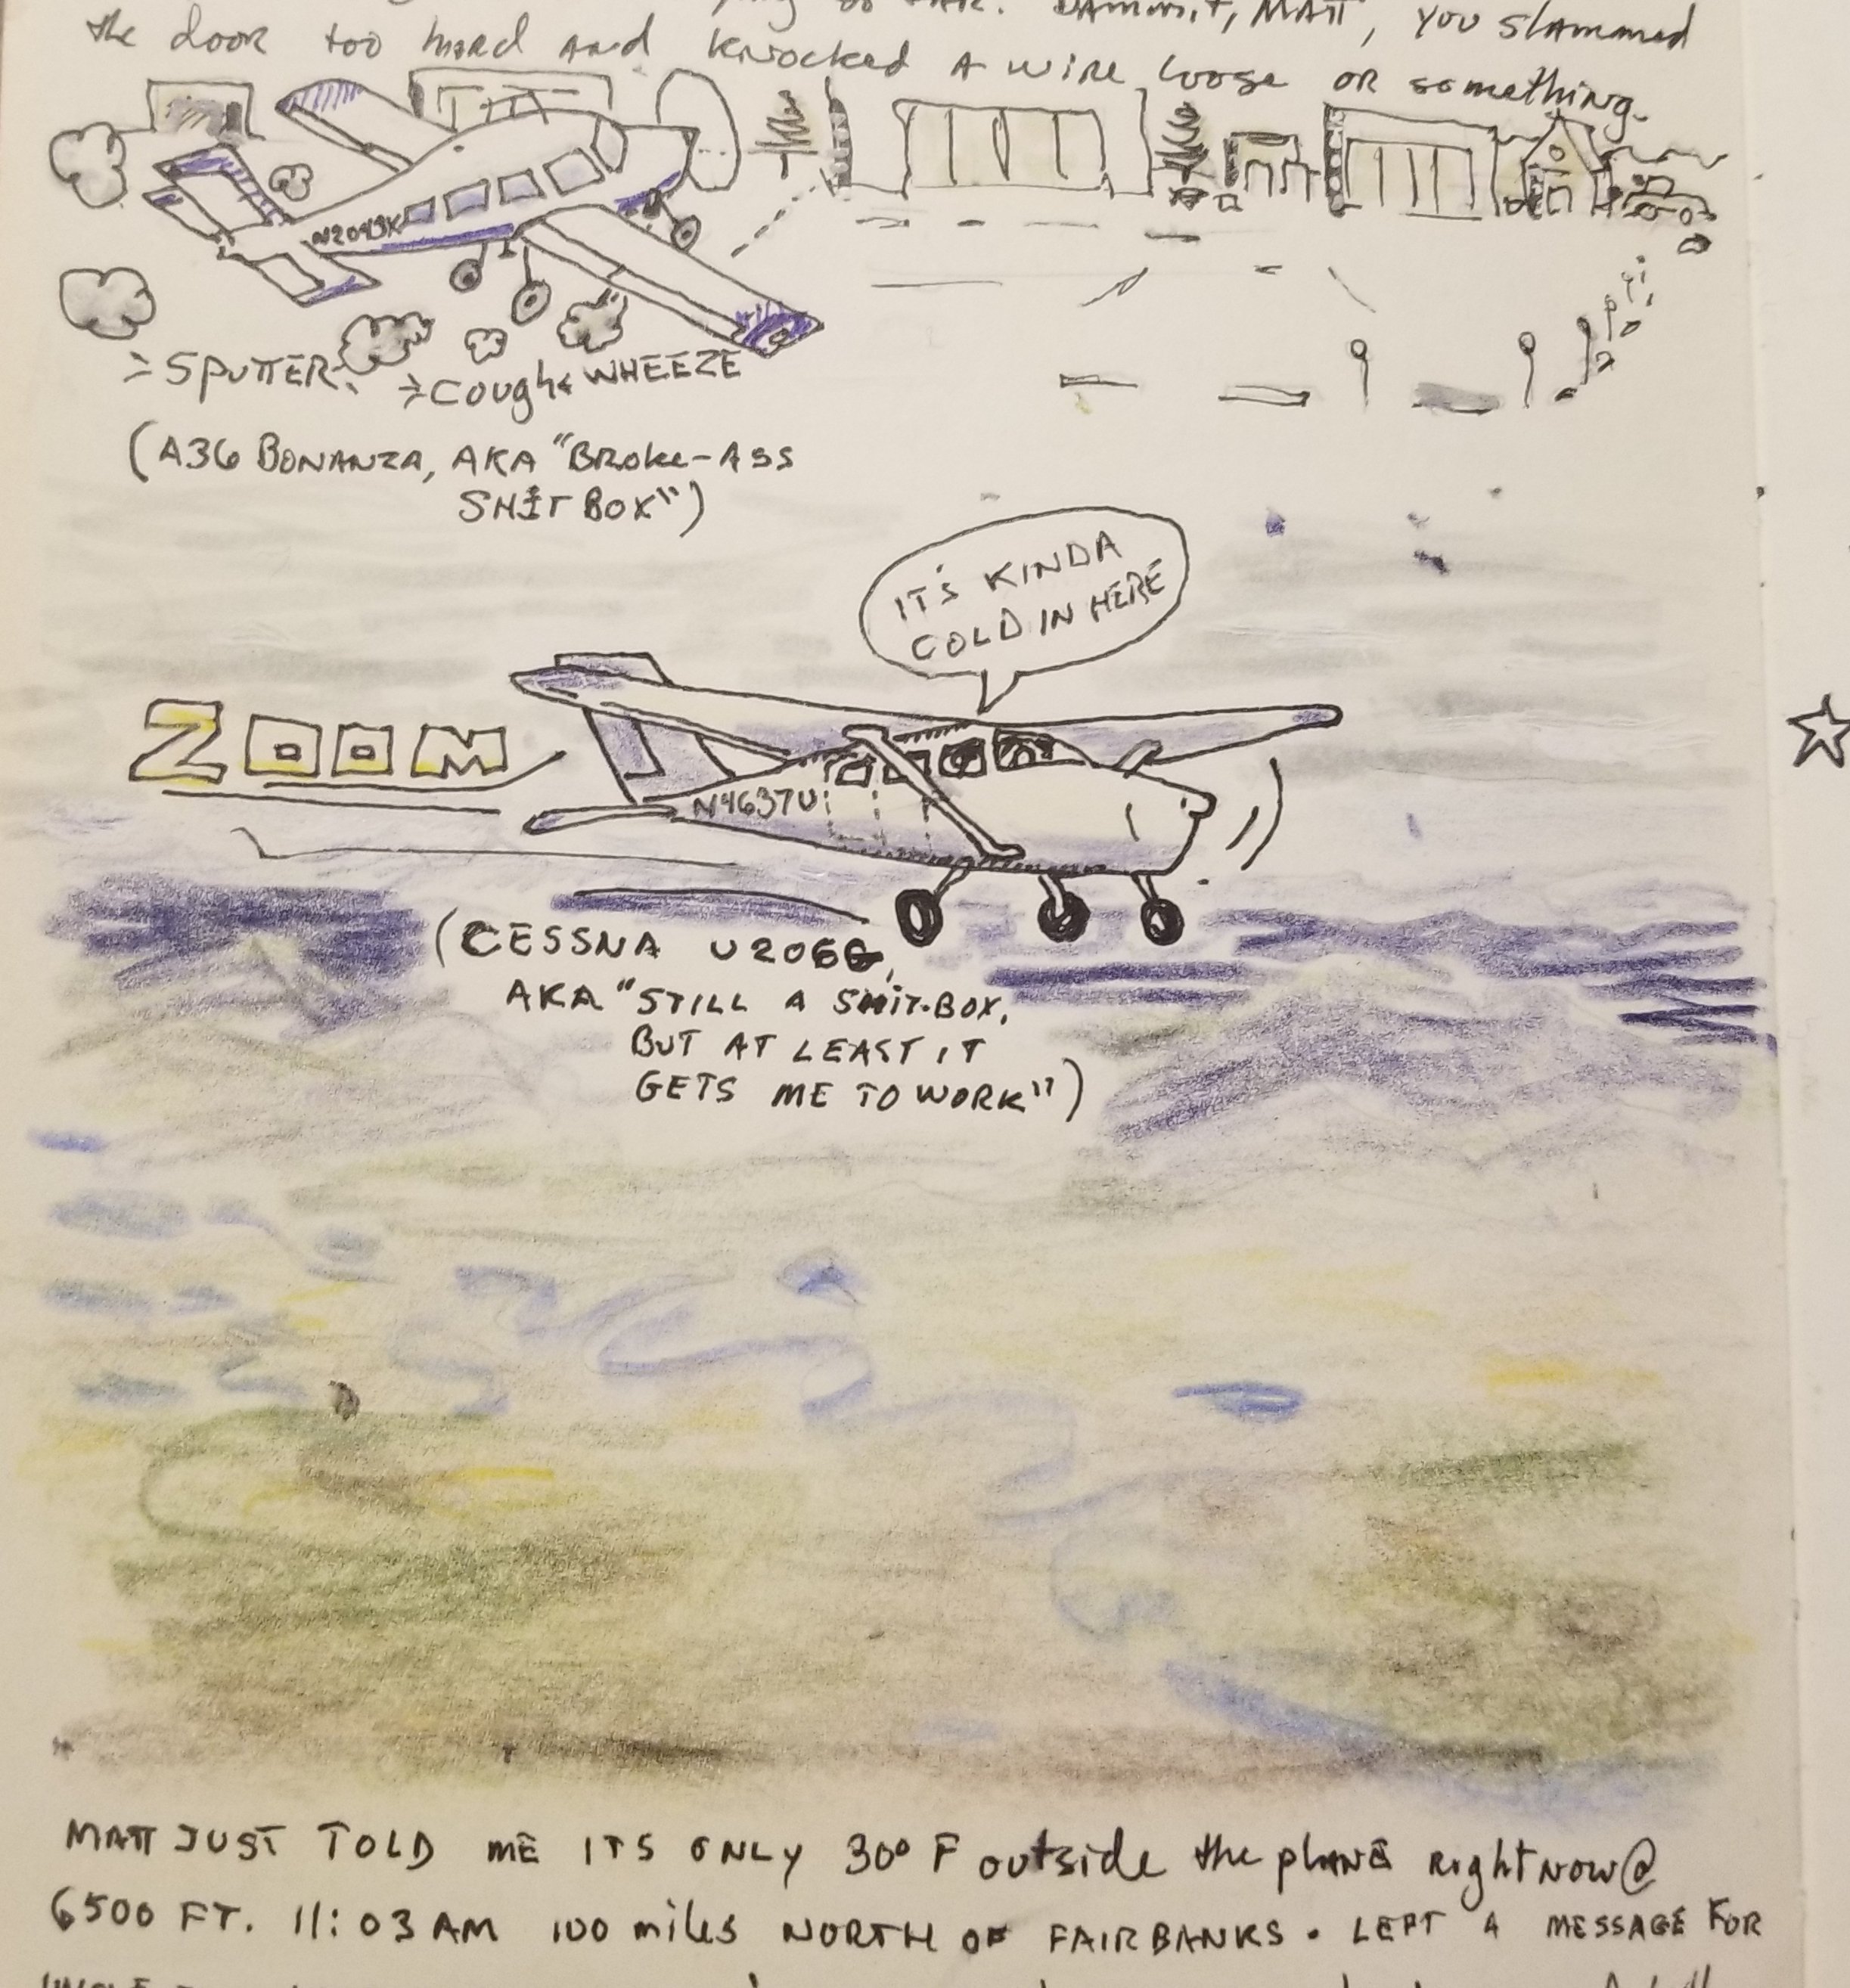 so far. Dammit, Matt, you slammed
the door too hard and knocked a wire loose or something.
N2049K
>SPUTTER< >Cough< WHEEZE
(A36 BONANZA, AKA "BROKE-ASS
SHIT BOX")
IT'S KINDA
COLD IN HERE
ZOOM
N4637U
(CESSNA U206G,
AKA "STILL A SHIT-BOX,
BUT AT LEAST IT
GETS ME TO WORK")
MATT JUST TOLD ME ITS ONLY 30° F outside the plane right now @
6500 FT. 11:03 AM 100 miles NORTH OF FAIRBANKS. LEFT A MESSAGE FOR